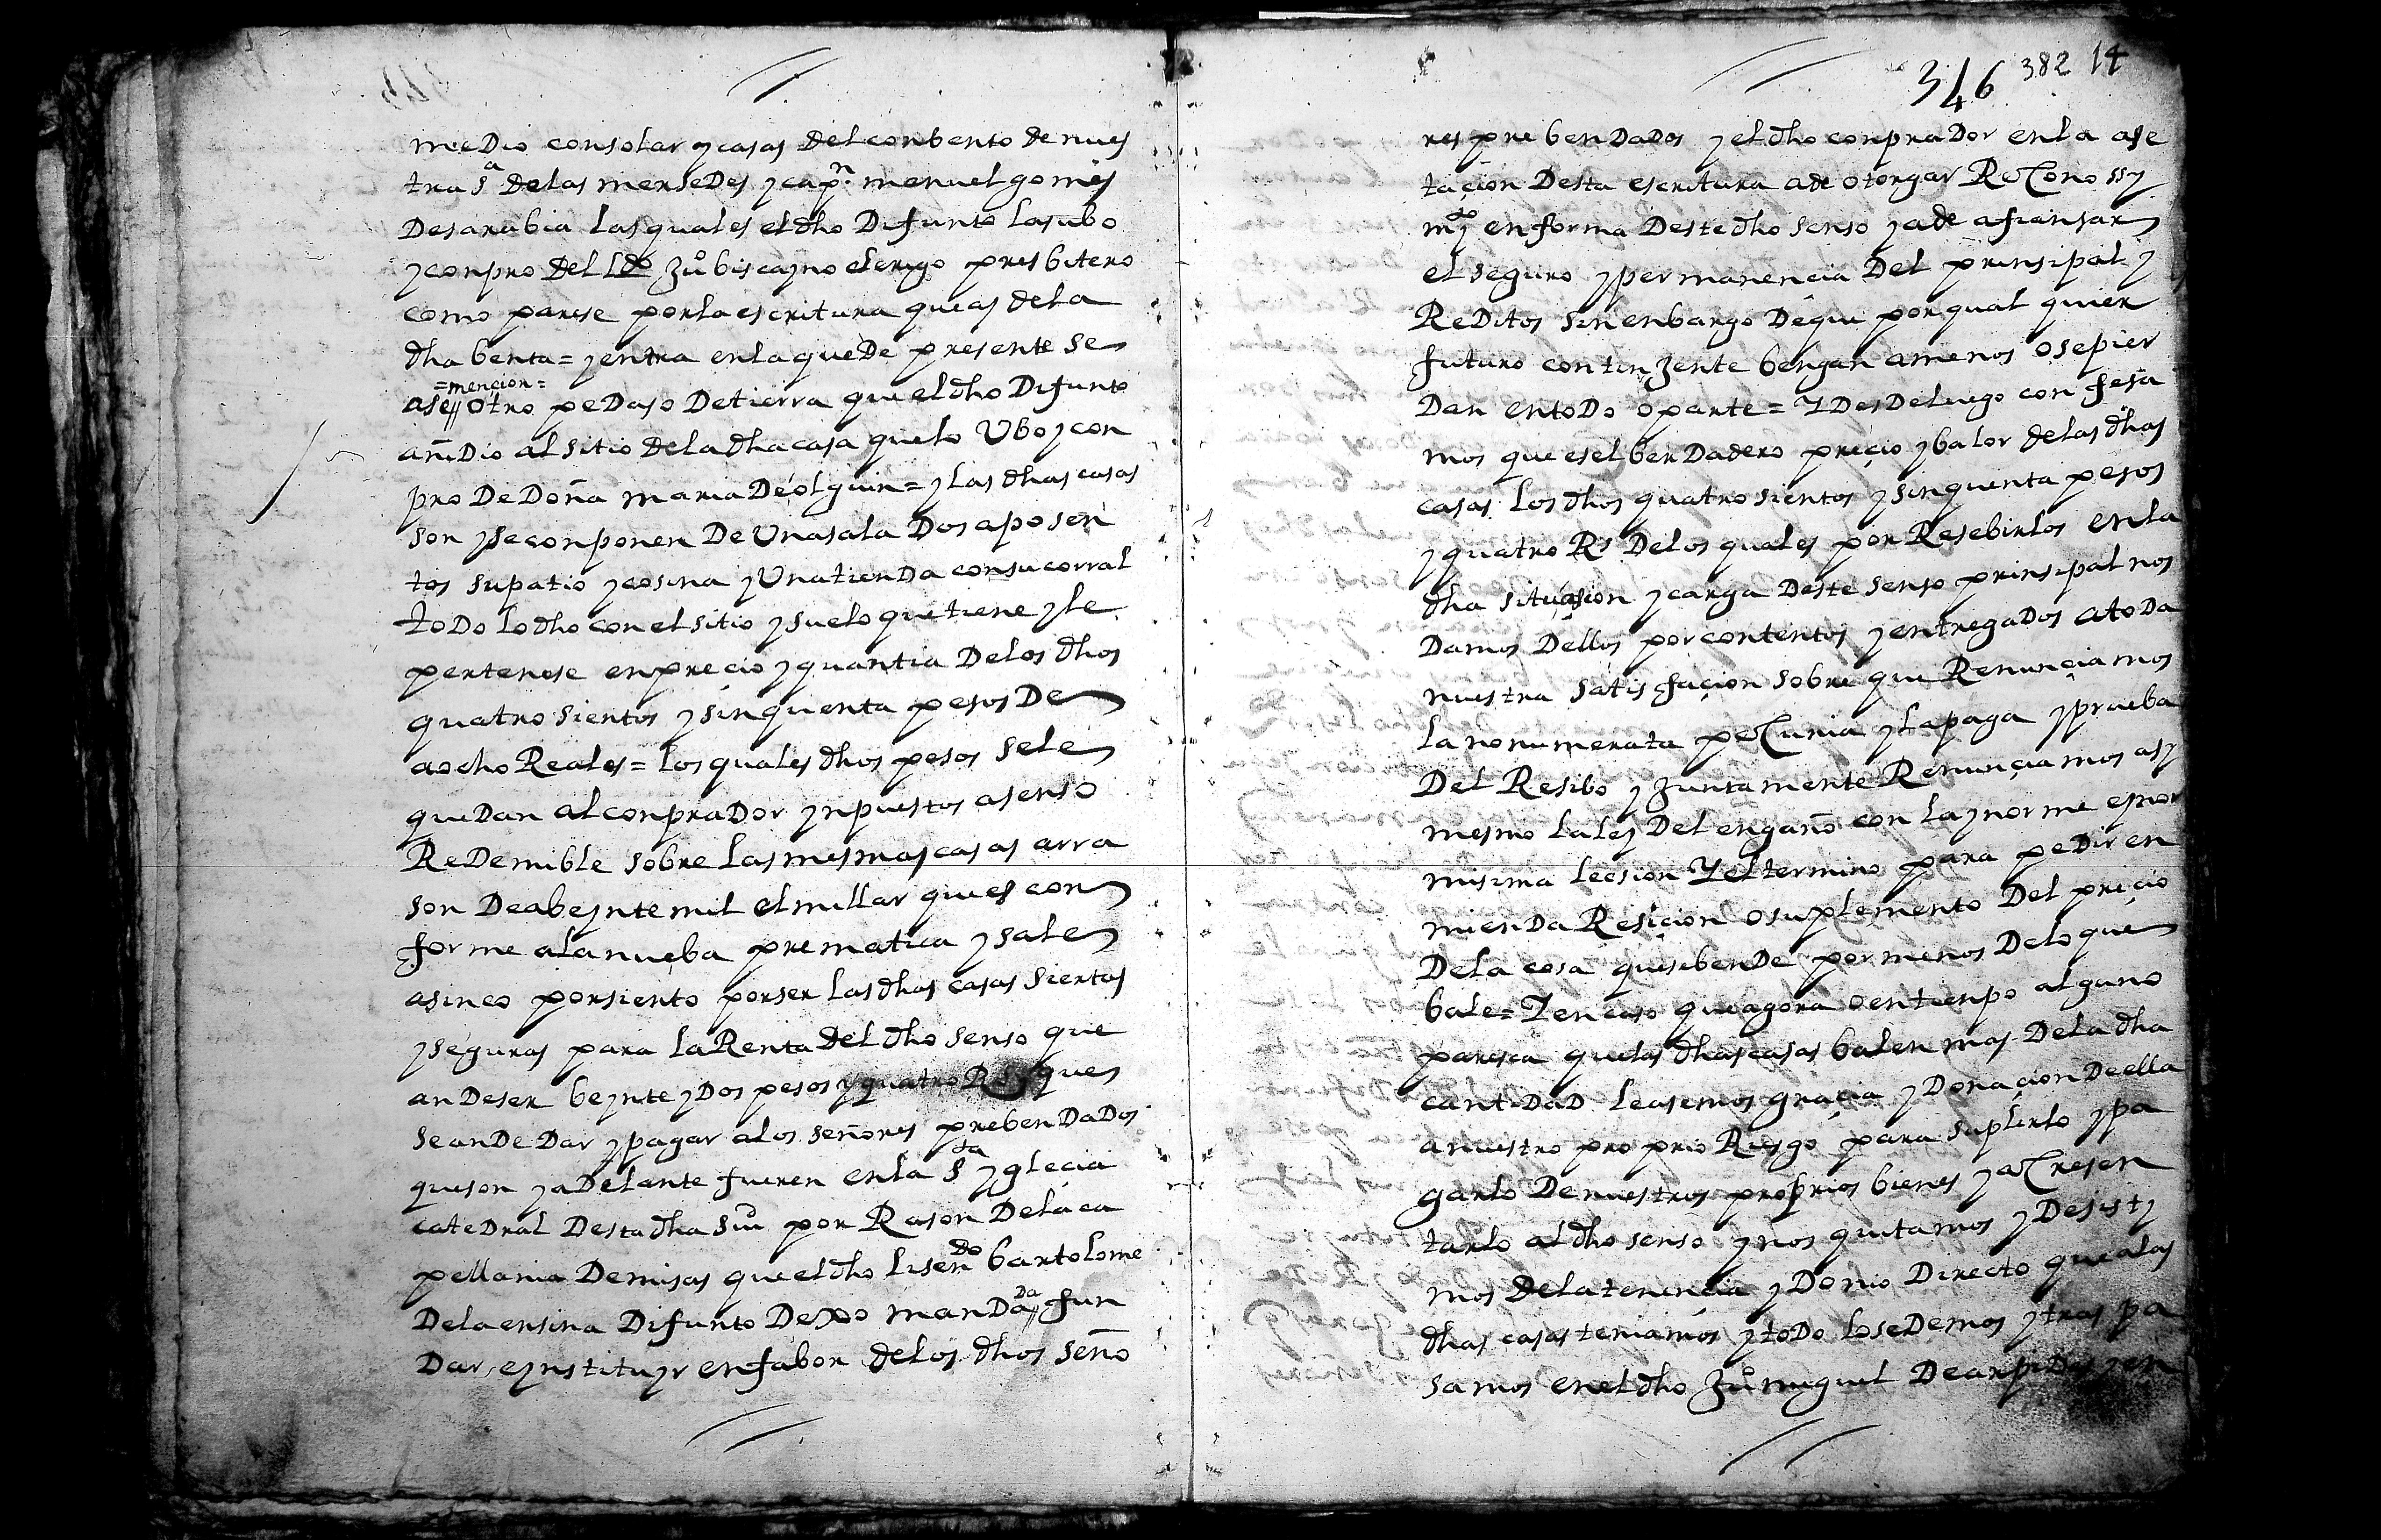 meDio consolar y casas del conbento de nues
tra Sª de las merseDes y capⁿ. manuel gomes
De sarabia las quales el dho Difunto las ubo
y conpro del Ldo Juº biscayno clerigo presbitero
como parese por la escritura que as de la
dha benta = y entra en la que De presente se
=mencion=
ase // otro peDaso De tierra que el dho Difunto
añiDio al sitio de la dha casa que lo Ubo y con
pro De Doña maria De olguin = y Las dhas casas
son y se conponen De Una sala Dos aposen
tos su patio y cosina y Una tienDa con su corral
toDo lo dho con el sitio y suelo que tiene y le
pertenese en preçio y quantia De los dhos
quatro sientos y sinquenta pesos De
a ocho Reales = los quales dhos pesos se le
queDan al conpraDor ynpuestos a senso
ReDemible sobre las mesmas casas a rra
son De a beynte mil el millar que es con
forme a la nueba prematica y sale
a sinco por siento por ser las dhas casas siertas
y seguras para la Renta del dho senso que
an De ser beynte y Dos pesos y quatro Rs y ques
se an De Dar y pagar a los señores prebenDaDos
que son y aDelante fueren en la Sta ygleçia
cateDral Desta dha Ciu por Rason De la ca
pellania De misas que el dho lisendo bartolome
De la ensina Difunto Dexo manDaDa // fun
Dar e ynstituyr en fabor de los dhos seño
346 382 14
res prebenDaDos y el dho conpraDor en la ase
taçion Desta escritura a de otorgar Reconossy
myto en forma Deste dho senso y a de afiansar
el seguro y permanençia Del prinsipal y
ReDitos sin enbargo De que por qual quier
futuro continjente bengan a menos o se pier
Dan en toDo o parte = Y DesDe luego confesa
mos que es el berDaDero preçio y balor de las dhas
casas los dhos quatro sientos y sinquenta pesos
y quatro Rs De los quales por Resebirlos en la
dha situasion y carga Deste senso prinsipal nos
Damos Dellos por contentos y entregaDos a toDa
nuestra satisfaçion sobre que Renunçiamos
la nonumerata pecunia y la paga y prueba
Del Resibo y juntamente Renunçiamos asy
mesmo la ley Del engaño con la ynorme e ynor
misima leesion Y el termino para peDir en
mienDa Resiçion o suplemento Del preçio
De la cosa que se benDe por menos De lo que
bale = Y en caso que agora o en tienpo alguno
paresca que las dhas casas balen mas De la dha
cantiDaD le asemos graçia y Donaçion De ella
a nuestro proprio Riesgo para suplirlo y pa
garlo De nuestros proprios bienes y acresen
tarlo al dho senso y nos quitamos y Desisty
mos de la tenençia y Donio Directo que a las
dhas casas teniamos y toDo lo seDemos y traspa
samos en el dho Juº miguel De arpiDes y en